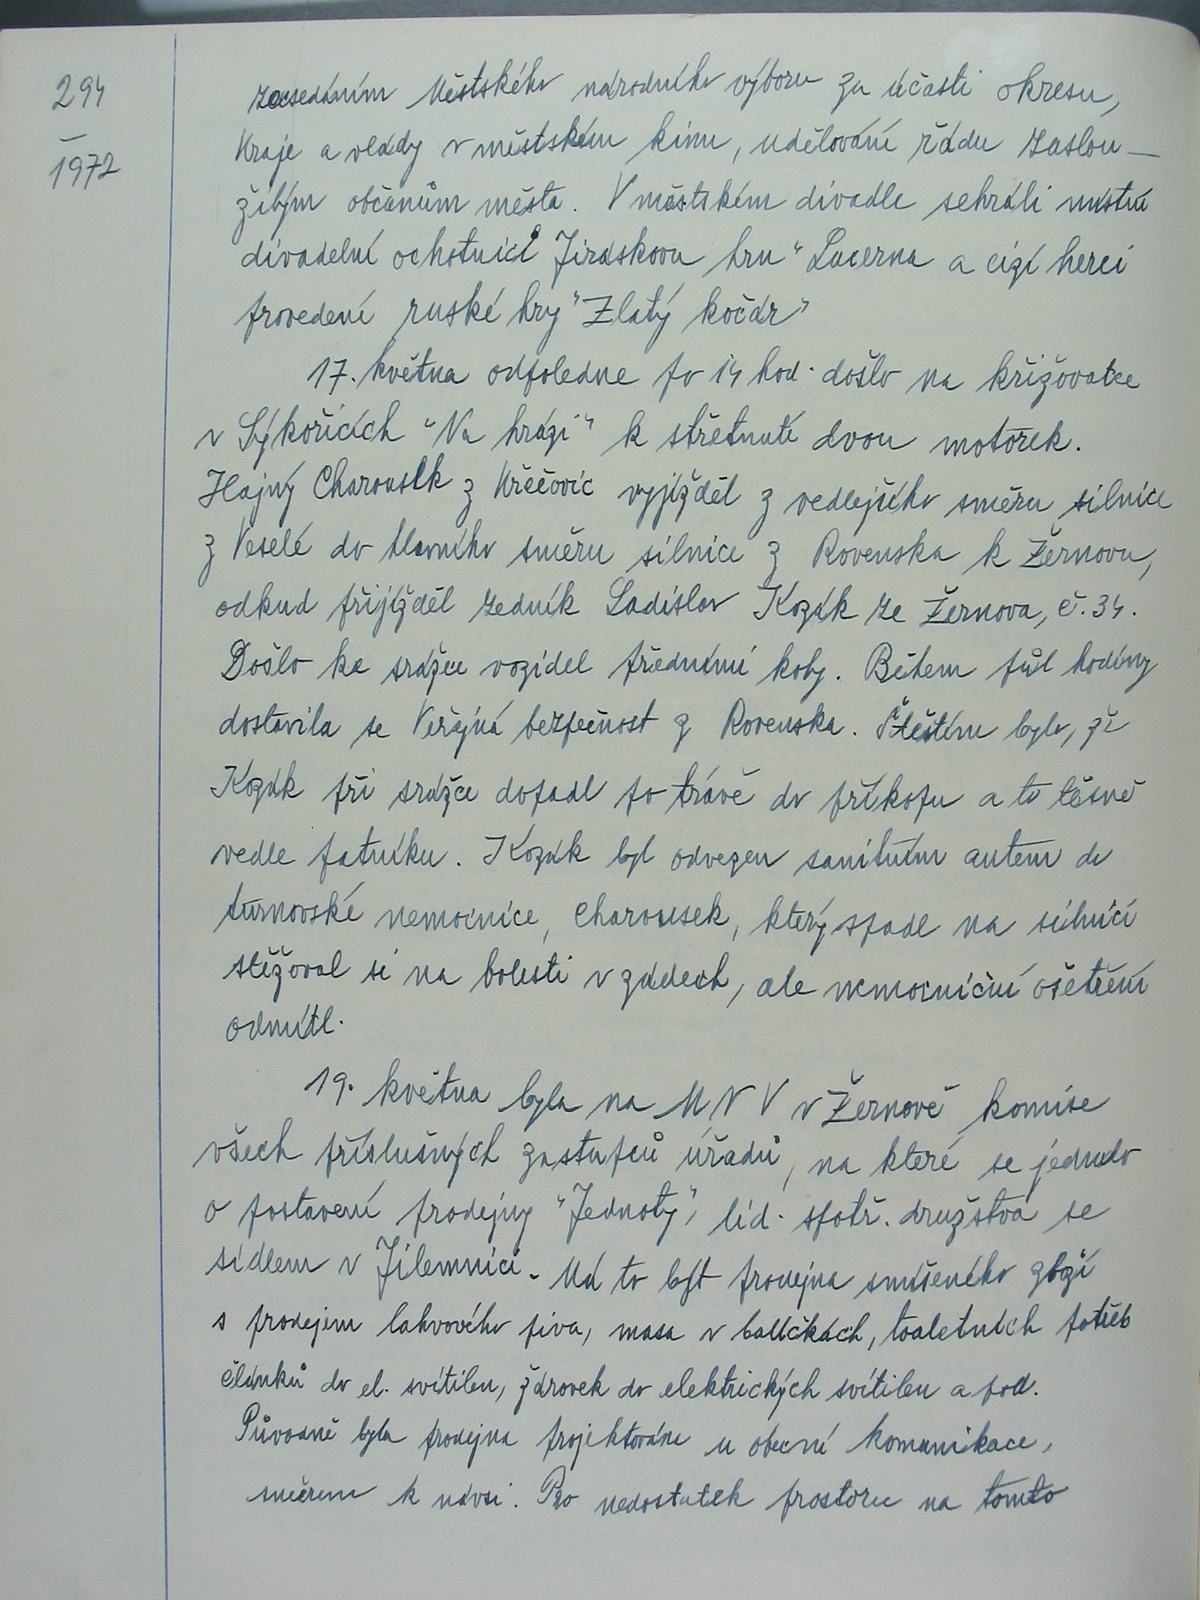 294
—
1972
zasedáním Městského národního výboru za účasti okresu,
Kraje a vlády v městském kinu, udělování řádu zaslou-
žilým občanům města. V městském divadle sehráli místní
divadelní ochotníci Jiráskovu hru "Lucerna a cizí herci
provedení ruské hry "Zlatý kočár"
17. května odpoledne po 14 hod. došlo na křižovatce
v Sýkořicích "Na hrázi" k střetnutí dvou motorek.
Hajný Charousek z Křečovic vyjížděl z vedlejšího směru silnice
z Veselé do hlavního směru silnice z Rovenska k Žernovu,
odkud přijížděl zedník Ladislav Kozák ze Žernova, č. 34.
Došlo ke srážce vozidel předními koly. Během půl hodiny
dostavila se Veřejná bezpečnost z Rovenska. Štěstím bylo, že
Kozák při srážce dopadl po trávě do příkopu a to těsně
vedle patníku. Kozák byl odvezen sanitním autem do
turnovské nemocnice, Charousek, který spadl na silnici
stěžoval si na bolesti v zádech, ale nemocniční ošetření
odmítl.
19. května byla na M N V v Žernově komise
všech příslušných zástupců úřadů, na které se jednalo
o postavení prodejny "Jednoty", lid. spotř. družstva se
sídlem v Jilemnici. Má to být prodejna smíšeného zboží
s prodejem lahvového piva, masa v balíčkách, toaletních potřeb
článků do el. svítilen, žárovek do elektrických svítilen a pod.
Původně byla prodejna projektována u obecní komunikace,
směrem k návsi. Pro nedostatek prostoru na tomto